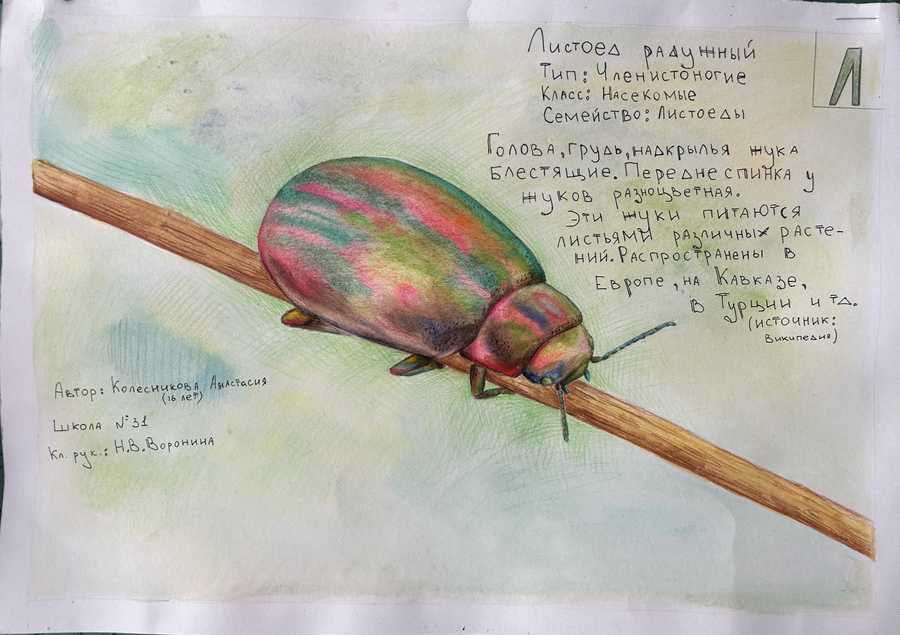 Листоед радужный
Тип: Членистоногие
Класс: Насекомые
Семейство: Листоеды
Л
Голова, грудь, надкрылья жука
блестящие. Переднеспинка у
жуков разноцветная.
Эти жуки питаются
листьями различных расте-
ний. Распространены в
Европе, на Кавказе,
в Турции и тд.
(источник:
Википедия)
Автор: Колесникова Анастасия
(16 лет)
Школа №31
Кл. рук.: Н.В. Воронина